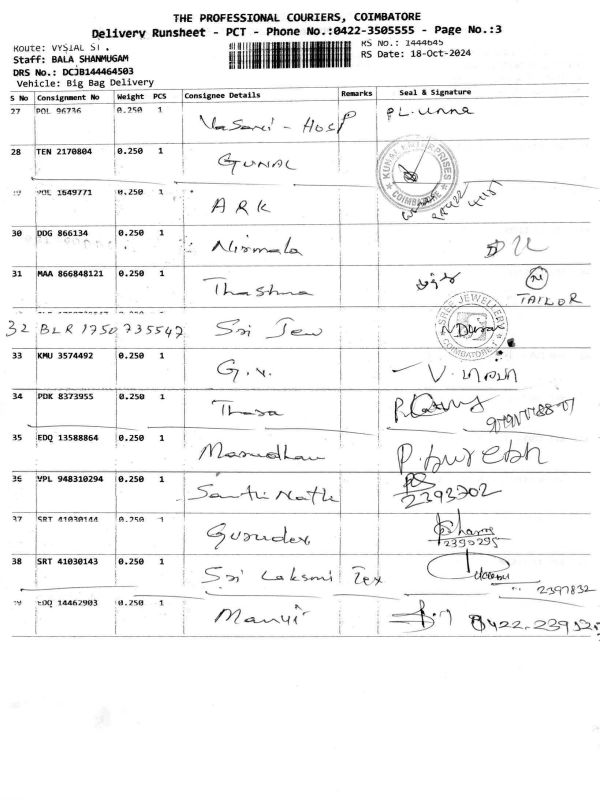 THE PROFESSIONAL COURIERS, COIMBATORE
Delivery Runsheet - PCT - Phone No.:0422-3505555 - Page No.:3
Route: VYSIAL ST.
RS No.: 1444645
Staff: BALA SHANMUGAM
RS Date: 18-Oct-2024
DRS No.: DCJB144464503
Vehicle: Big Bag Delivery
S No Consignment No Weight PCS Consignee Details Remarks Seal & Signature
27 POL 96736 0.250 1 Vasani - Hosp
28 TEN 2170804 0.250 1 GUNAL
KUNAL ENTERPRISES COIMBATORE
1649771 0.250 1 ARK
30 DDG 866134 0.250 1 Nirmala
31 MAA 866848121 0.250 1 Thashma
TAILOR
32 BLR 1750735547 Sri Jew
SREE JEWELLERY COIMBATORE-1
33 KMU 3574492 0.250 1 G.V.
34 PDK 8373955 0.250 1 Thara
35 EDQ 13588864 0.250 1 Marudhau P. Suresh
36 VPL 948310294 0.250 1 Santhi Nath
2393202
37 SRT 41030144 0.250 1 Gurudev
2390295
38 SRT 41030143 0.250 1 Sri Laksmi Tex
2397832
EDQ 14462903 0.250 1